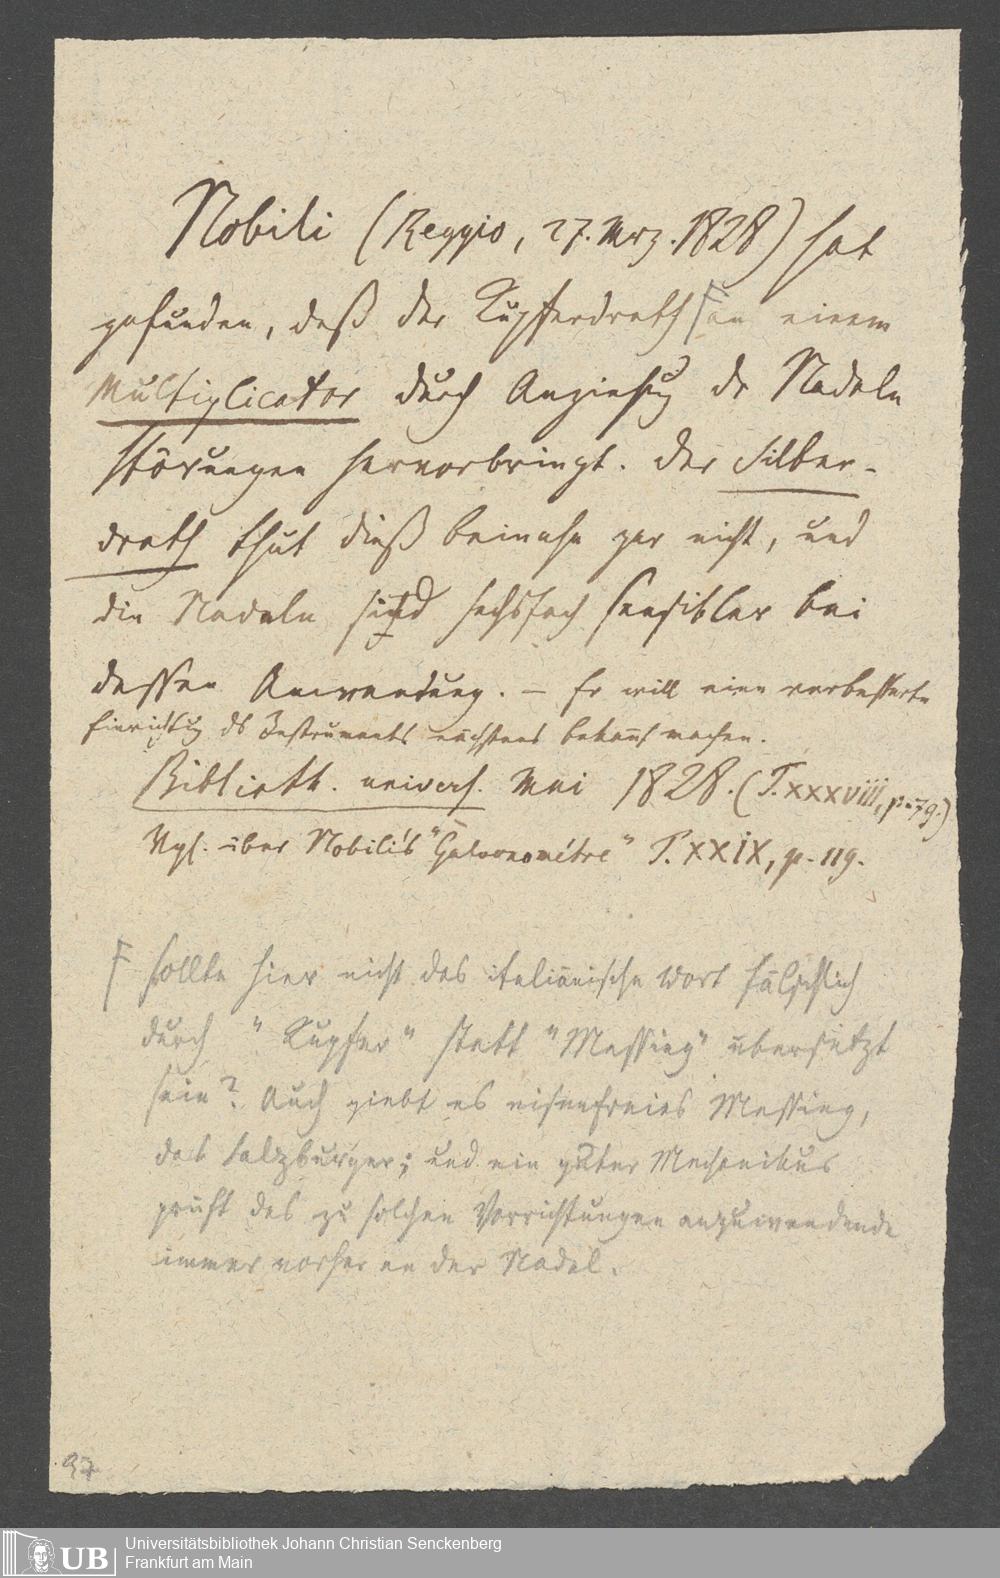 Nobili (Reggio, 27. Mrz. 1828) hat
gefunden, daß der Kupferdrath F an einem
Multiplicator durch Anziehug der Nadeln
Störungen hervorbringt. Der Silber-
drath thut dieß beinahe gar nicht, und
die Nadeln sind sechsfach sensibler bei
dessen Anwendung. – Er will eine verbesserte
Einrichtug ds Instruments nächstens bekannt machen.
Biblioth. univers. Mai 1828. (T. XXXVIII, p. 79.)
Vgl. über Nobili's "Galvanométre" T. XXIX, p. 119.
F Sollte hier nicht das italiänische Wort fälschlich
durch "Kupfer" statt "Messing" übersetzt
sein? Auch giebt es eisenfreies Messing,
das Salzburger; und ein guter Mechanikus
prüft das zu solchen Vorrichtungen anzuwendende
immer vorher an der Nadel.
97
UB
Universitätsbibliothek Johann Christian Senckenberg
Frankfurt am Main